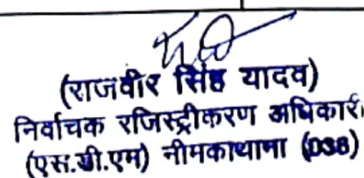 (राजवीर सिंह यादव)
निर्वाचक रजिस्ट्रीकरण अधिकारी
(एस.डी.एम) नीमकाथाना (036)